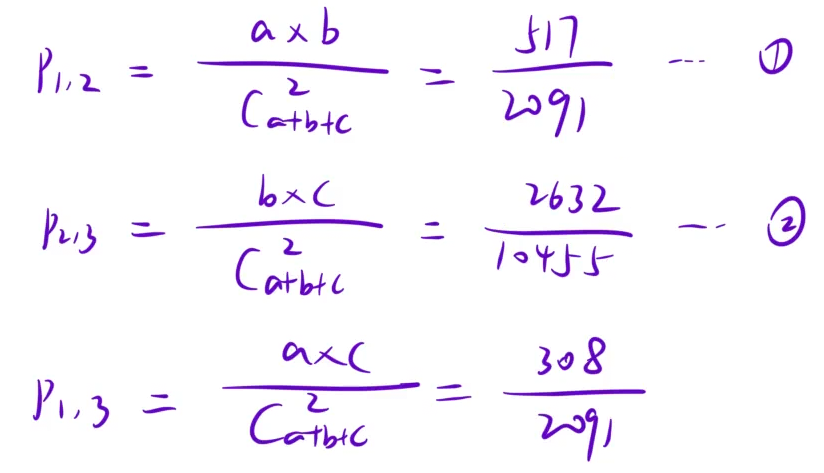 P₁,₂ = (a × b) / C²ₐ₊b₊c = 517 / 2091 ··· ①
P₂,₃ = (b × c) / C²ₐ₊b₊c = 2632 / 10455 ··· ②
P₁,₃ = (a × c) / C²ₐ₊b₊c = 308 / 2091